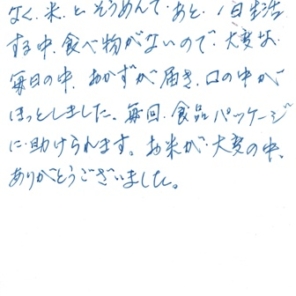 なく、米、と、そうめんで、あと、1日生活
する中、食べ物がないので、大変な
毎日の中、おかずが届き、口の中が
ほっとしました。毎回、食品パッケージ
に助けられます。お米が大変の中、
ありがとうございました。